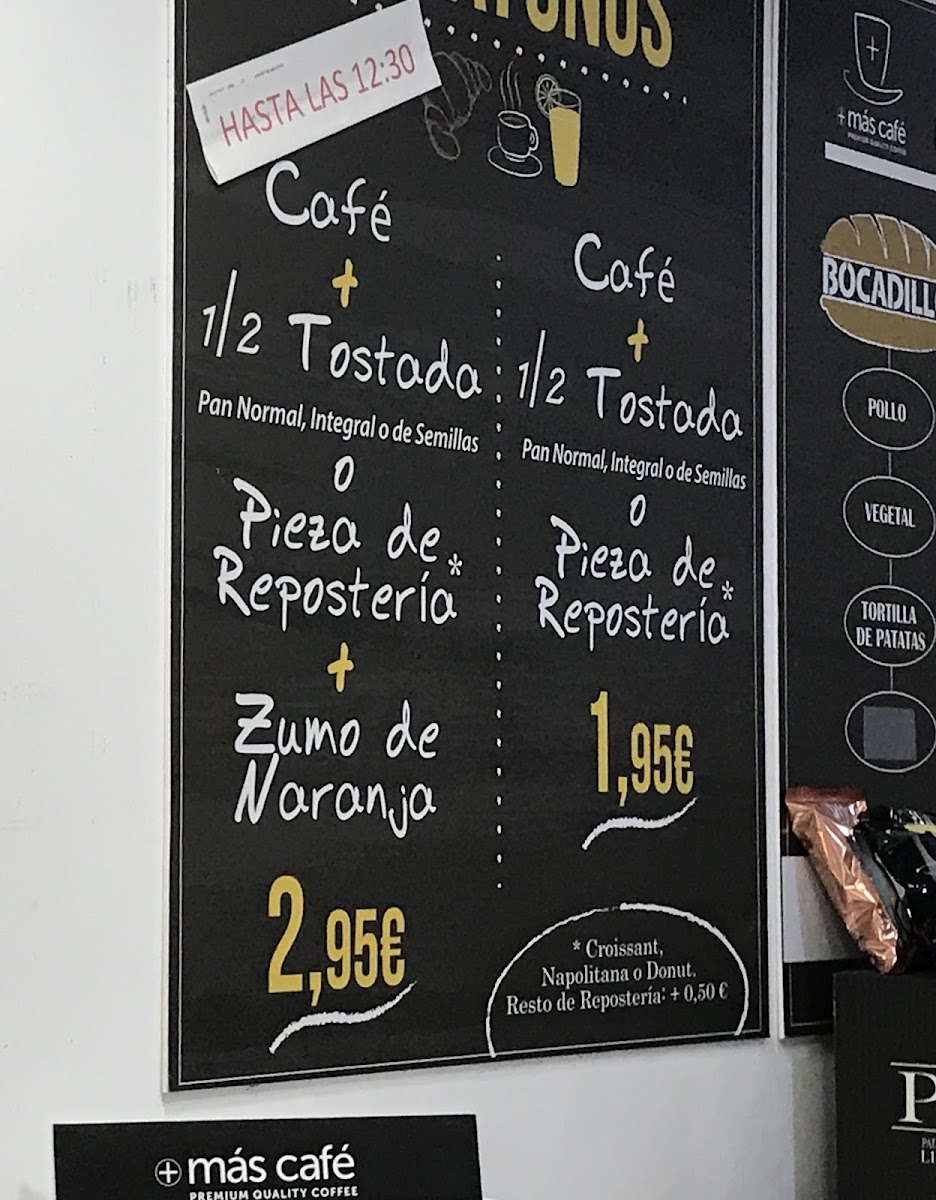 HASTA LAS 12:30
Café
+
1/2 Tostada
Pan Normal, Integral o de Semillas
o
Pieza de
Repostería*
+
Zumo de
Naranja
2,95€
Café
+
1/2 Tostada
Pan Normal, Integral o de Semillas
o
Pieza de
Repostería*
1,95€
* Croissant,
Napolitana o Donut.
Resto de Repostería: + 0,50 €
+ más café
PREMIUM QUALITY COFFEE
BOCADILL
POLLO
VEGETAL
TORTILLA
DE PATATAS
+ más café
PREMIUM QUALITY COFFEE